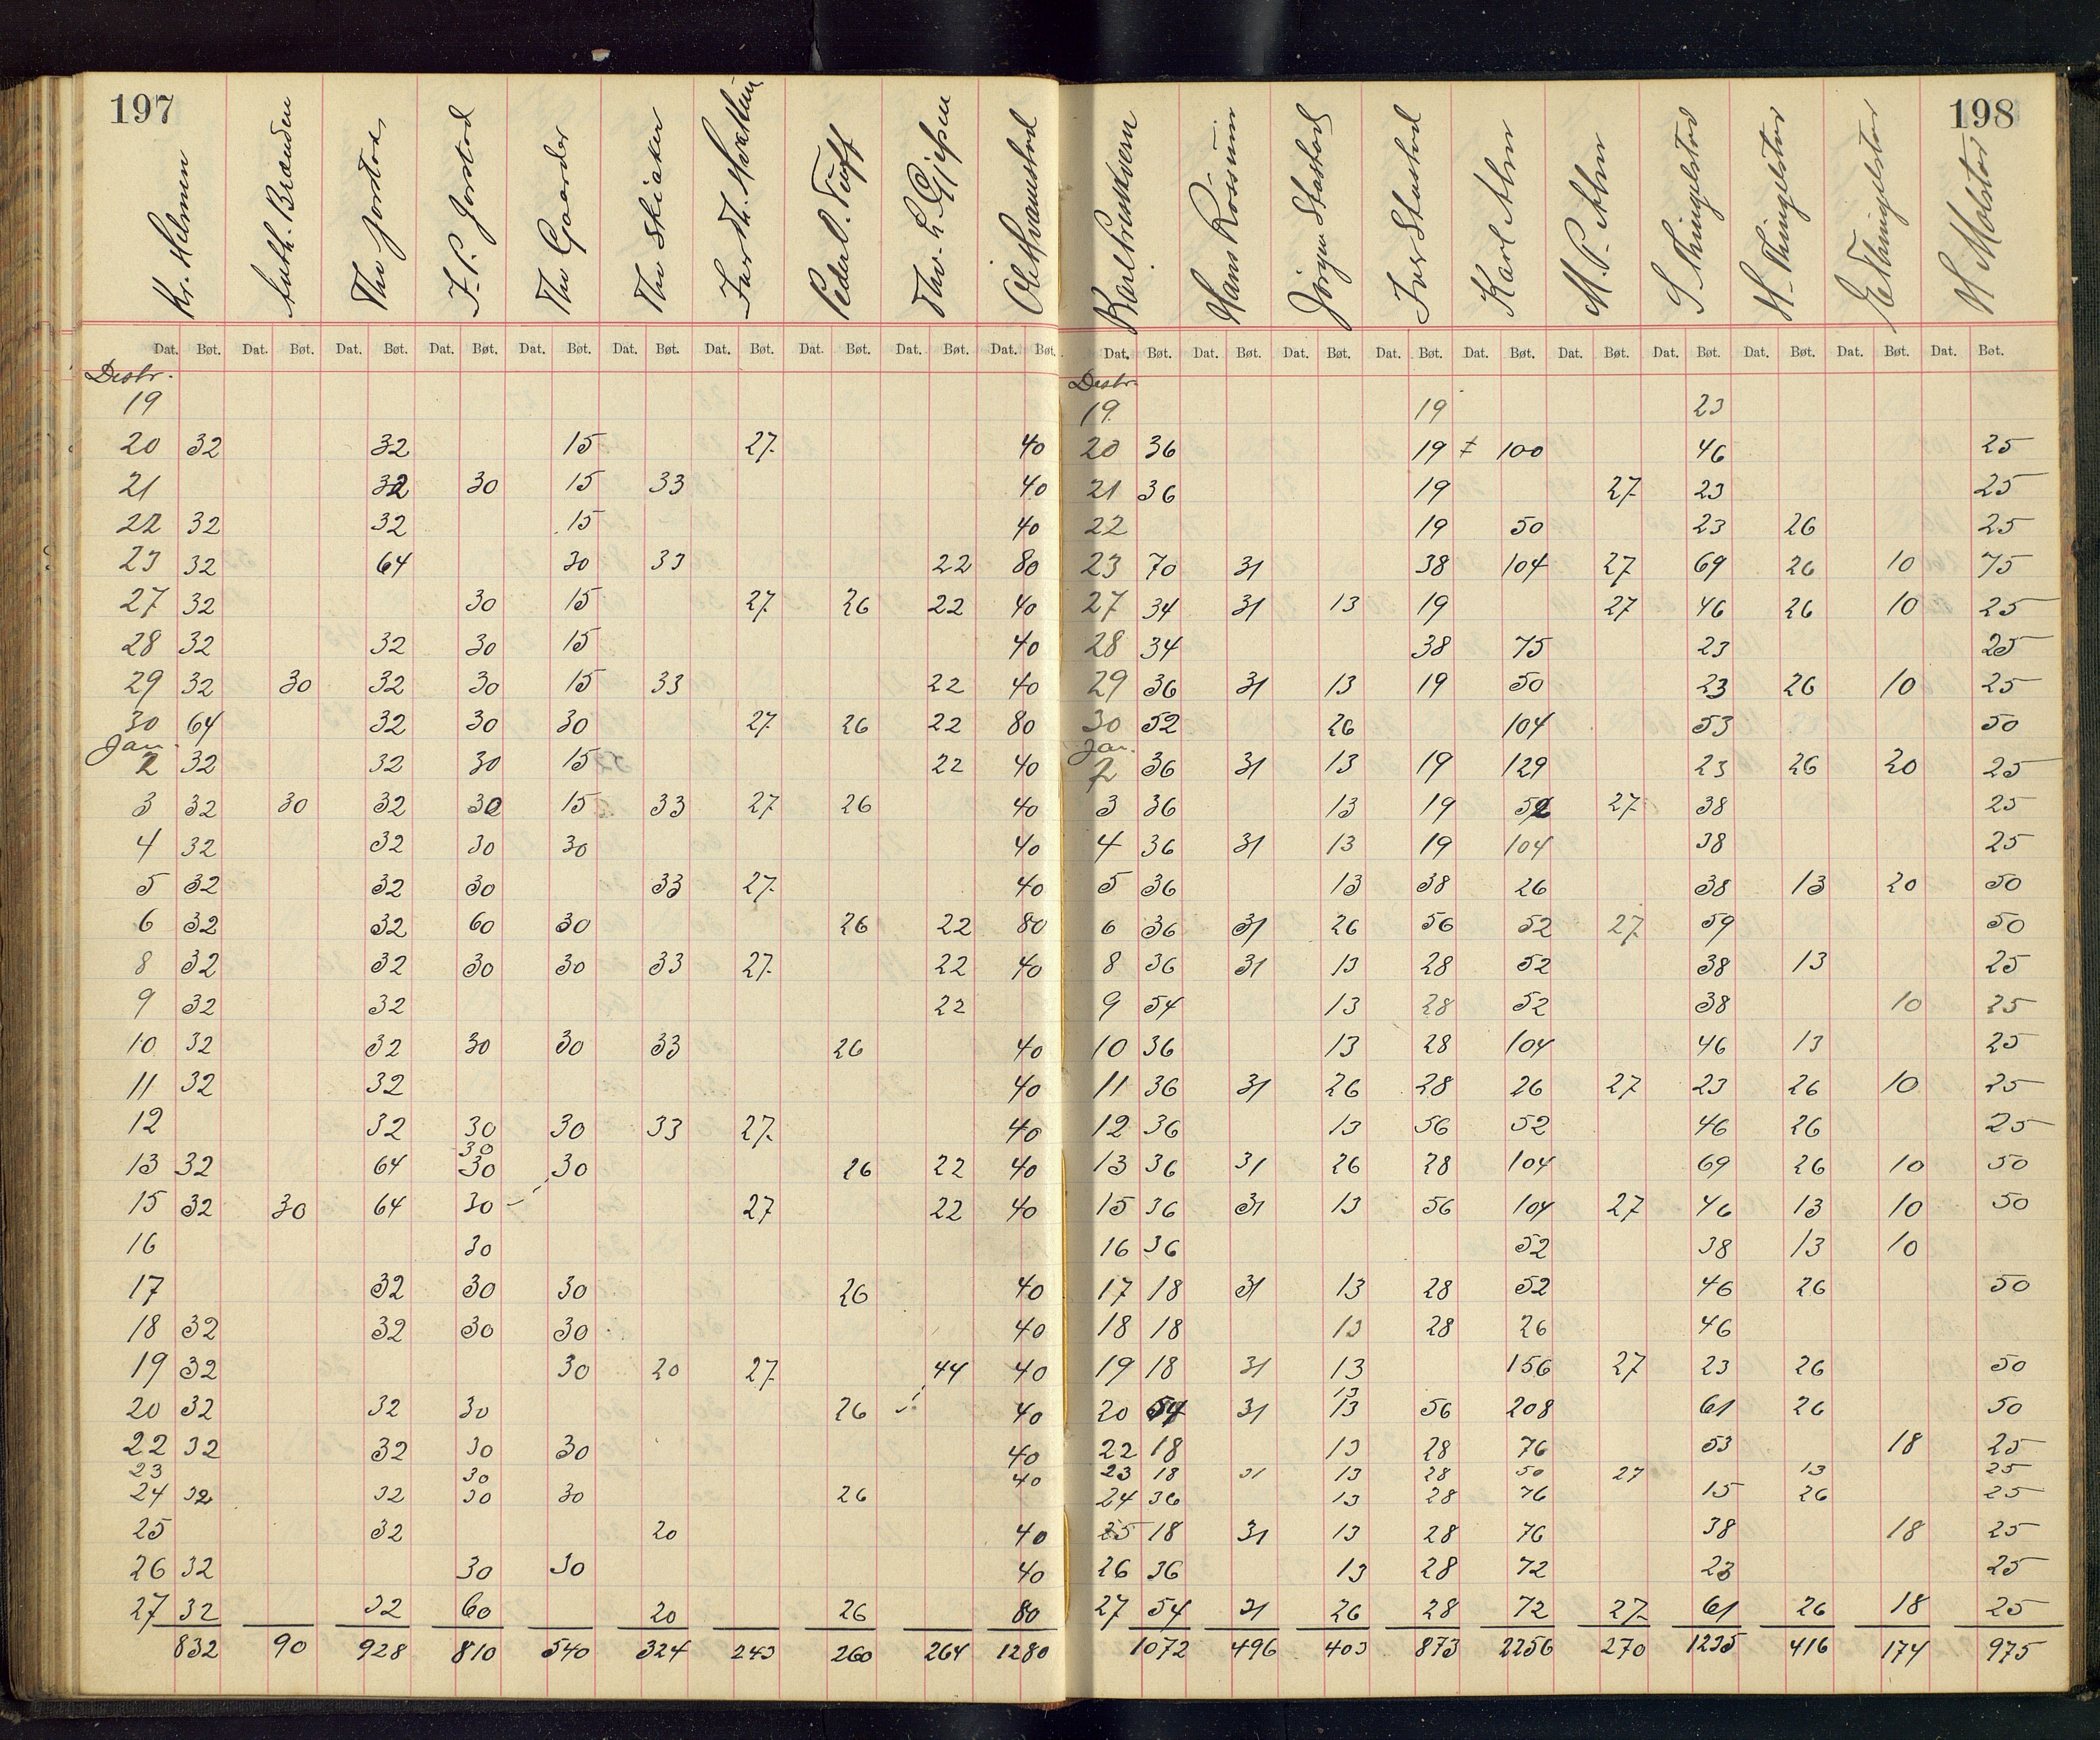 197
Kr. Helmen
Anth. Brænden
Thv Jorstad
J. P. Jorstad
Thv Gaarder
Thv Skiaker
Iver Th.
Peder O. Tufft
Thv. L. Gjefsen
Ole Hvamstad
Dat. Bøt. Dat. Bøt. Dat. Bøt. Dat. Bøt. Dat. Bøt. Dat. Bøt. Dat. Bøt. Dat. Bøt. Dat. Bøt. Dat. Bøt.
Desbr.
19
20 32 32 15 27 40
21 32 30 15 33 40
22 32 32 15 40
23 32 64 30 33 22 80
27 32 30 15 27 26 22 40
28 32 32 30 15 40
29 32 30 32 30 15 33 22 40
30 64 32 30 30 27 26 22 80
Jan.
2 32 32 30 15 22 40
3 32 30 32 30 15 33 27 26 40
4 32 32 30 30 40
5 32 32 30 33 27 40
6 32 32 60 30 26 22 80
8 32 32 30 30 33 27 22 40
9 32 32 22
10 32 32 30 30 33 26 40
11 32 32 40
12 32 30 30 33 27 40
30
13 32 64 30 30 26 22 40
15 32 30 64 30 27 22 40
16 30
17 32 30 30 26 40
18 32 32 30 30 40
19 32 30 20 27 44 40
20 32 32 30 26 40
22 32 32 30 30 40
23 30 40
24 32 32 30 30 26
25 32 20 40
26 32 30 30 40
27 32 32 60 20 26 80
832 90 928 810 540 324 243 260 264 1280
198
Karl
Hans Rossum
Jørgen Stastad
Iver Stastad
Karl Alm
M. P. Alm
S Thingelstad
H. Thingelstad
E Thingelstad
H Molstad
Dat. Bøt. Dat. Bøt. Dat. Bøt. Dat. Bøt. Dat. Bøt. Dat. Bøt. Dat. Bøt. Dat. Bøt. Dat. Bøt. Dat. Bøt.
Desbr.
19 19 23
20 36 19 100 46 25
21 36 19 27 23 25
22 19 50 23 26 25
23 70 31 38 104 27 69 26 10 75
27 34 31 13 19 27 46 26 10 25
28 34 38 75 23 25
29 36 31 13 19 50 23 26 10 25
30 52 26 104 53 50
Jan.
2 36 31 13 19 129 23 26 20 25
3 36 13 19 52 27 38 25
4 36 31 13 19 104 38 25
5 36 13 38 26 38 13 20 50
6 36 31 26 56 52 27 59 50
8 36 31 13 28 52 38 13 25
9 54 13 28 52 38 10 25
10 36 13 28 104 46 13 25
11 36 31 26 28 26 27 23 26 10 25
12 36 13 56 52 46 26 25
13 36 31 26 28 104 69 26 10 50
15 36 31 13 56 104 27 46 13 10 50
16 36 52 38 13 10
17 18 31 13 28 52 46 26 50
18 18 13 28 26 46
19 18 31 13 156 27 23 26 50
13
20 54 31 13 56 208 61 26 50
22 18 13 28 76 53 18 25
23 18 31 13 28 50 27 13 25
24 36 13 28 76 15 26 25
25 18 31 13 28 76 38 18 25
26 36 13 28 72 23 25
27 54 31 26 28 72 27 61 26 18 25
1072 496 403 873 2256 270 1235 416 174 975